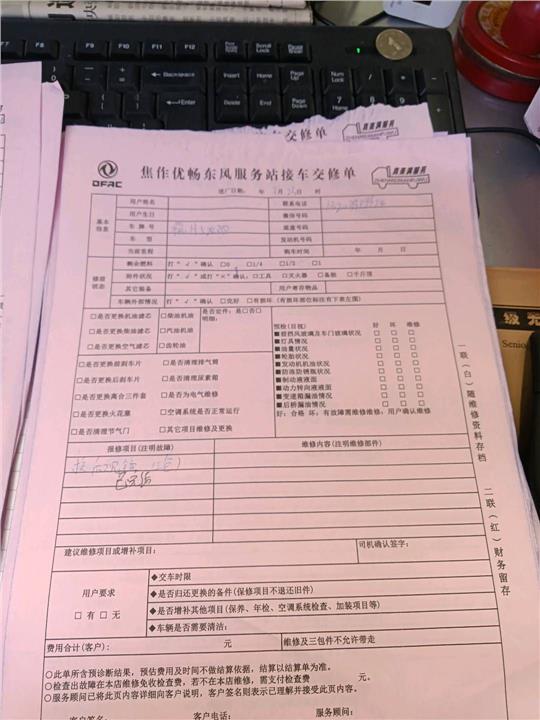 交修单
真意满服务
DFAC
焦作优畅东风服务站接车交修单
真意满服务
ZHENYIMANFUWU
送厂日期: 年 月 日 时
基本信息
用户姓名
联系电话
用户生日
微信号码
车牌号
底盘号码
车型
发动机号码
当前里程
购车时间 年 月 日
维修状态
剩余燃料 打“√”确认 □0 □1/4 □1/2 □1
附件状况 打“√”或打“×”确认:□工具 □灭火器 □备胎 □千斤顶
其它装备
用户寄存物品
车辆外部情况 打“√”确认 □完好 □有损坏(有损坏部位标注有下表左图)
□是否更换机油滤芯 □柴油机油
□是否更换柴油滤芯 □汽油机油
□是否更换空气滤芯 □齿轮油
是否定件: 是□否□
明细:
□是否更换前刹车片 □是否清理排气筒
□是否更换后刹车片 □是否清理尿素箱
□是否更换离合三件套 □是否为电气维修
□是否更换火花塞 □空调系统是否正常运行
□是否清理节气门 □其它项目维修及更换
预检(目视) 好 坏 维修
■前挡风玻璃及车门玻璃状况 □ □ □
■灯具情况 □ □ □
■油量状况 □ □ □
■轮胎状况 □ □ □
■发动机机油状况 □ □ □
■防冻防锈瓶状况 □ □ □
■制动液液面 □ □ □
■动力转向液液面 □ □ □
■变速箱漏油情况 □ □ □
■后桥漏油情况 □ □ □
好:合格 坏:有故障需维修维修:用户确认维修
报修项目(注明故障)
维修内容(注明维修部件)
建议维修项目或增补项目:
司机确认签字:
用户要求
□有 □无
◆交车时限
◆是否归还更换的备件(保修项目不退还旧件)
◆是否增补其他项目(保养、年检、空调系统检查、加装项目等)
◆车辆是否需要清洁:
费用合计(客户): 元
维修及三包件不允许带走
○此单所含预诊断结果,预估费用及时间不做结算依据,结算以结算单为准。
○检查出故障在本店维修免收检查费,若不在本店维修,需支付检查费 元。
○服务顾问已将此页内容详细向客户说明,客户签名则表示已理解并接受此页内容。
客户签名:
客户电话:
服务顾问:
一联(白)随维修资料存档
二联(红)财务留存